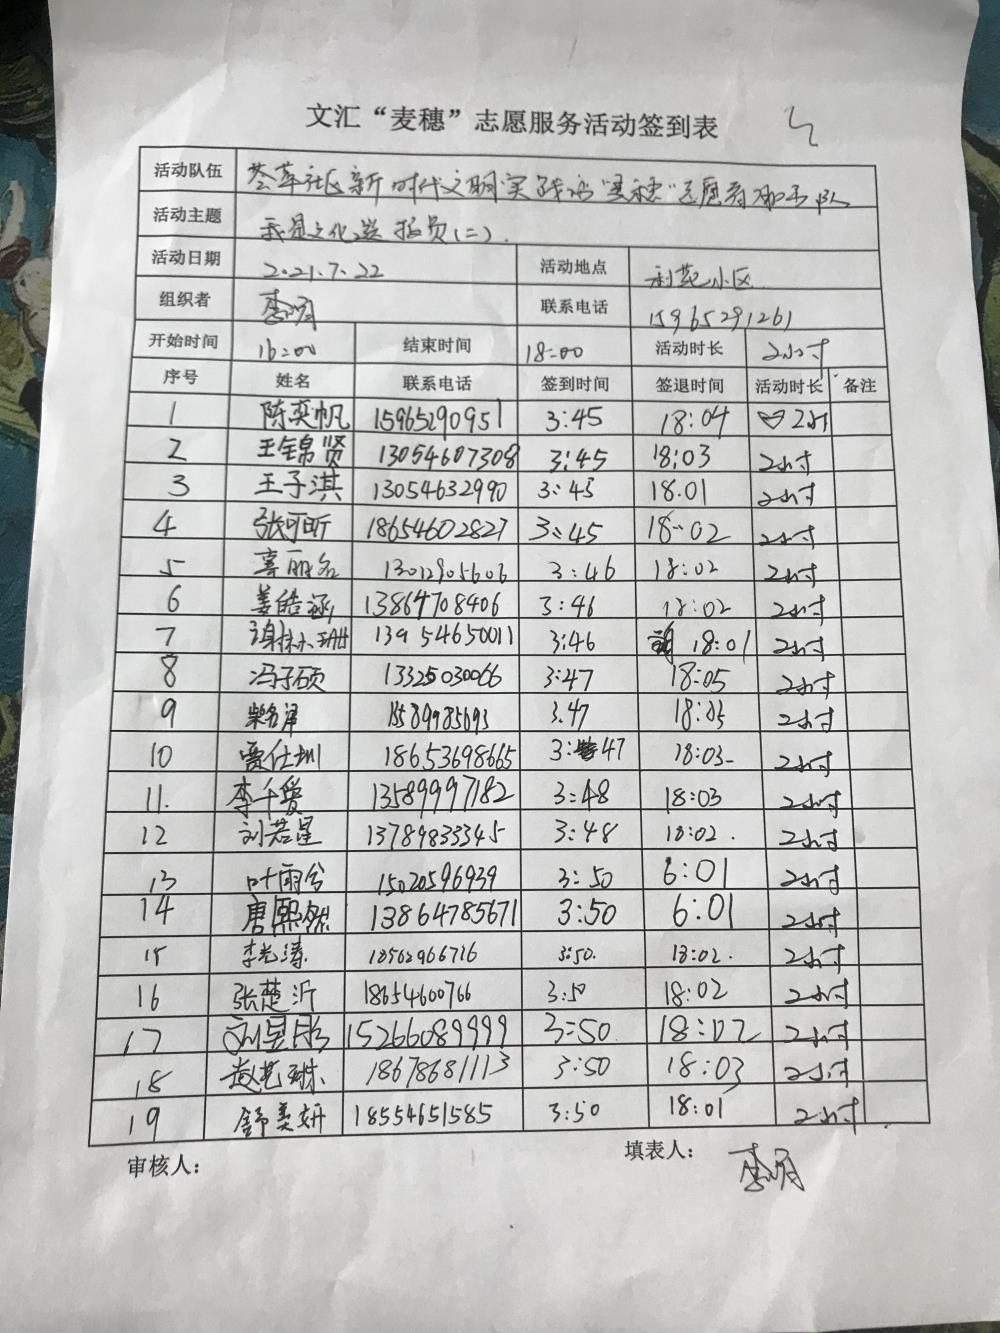 文汇“麦穗”志愿服务活动签到表
活动队伍 荟萃社区新时代文明实践站“麦穗”志愿者服务队
活动主题 我是文化逆插员(二).
活动日期 2021.7.22 活动地点 利苑小区
组织者 李明 联系电话 15965291261
开始时间 16:00 结束时间 18:00 活动时长 2小时
序号 姓名 联系电话 签到时间 签退时间 活动时长 备注
1 陈奕帆 15965290951 3:45 18:04 2小时
2 王锦贤 13054607308 3:45 18:03 2小时
3 王子淇 13054632990 3:45 18.01 2小时
4 张可昕 18654602827 3:45 18:02 2小时
5 丽名 13012905606 3:46 18:02 2小时
6 姜皓涵 13864708406 3:46 18:02 2小时
7 谢林珊 13954650011 3:46 18:01 2小时
8 冯子硕 13325030066 3:47 18:05 2小时
9 柴名泽 15589985693 3.47 18:05 2小时
10 贾仕圳 18653698665 3:47 18:03 2小时
11. 李千爱 13589997182 3:48 18:03 2小时
12 刘若星 13789833345 3:48 18:02. 2小时
13 叶雨兮 15020596939 3:50 6:01 2小时
14 唐熙然 13864785671 3:50 6:01 2小时
15 李光涛 18562966716 3:50. 18:02. 2小时
16 张楚沂 18654600766 3:50 18:02 2小时
17 刘昱彤 15266089999 3:50 18:02 2小时
18 赵艺琳 18678681113 3:50 18:03 2小时
19 舒美妍 18554651585 3:50 18:01 2小时
审核人： 填表人： 李明